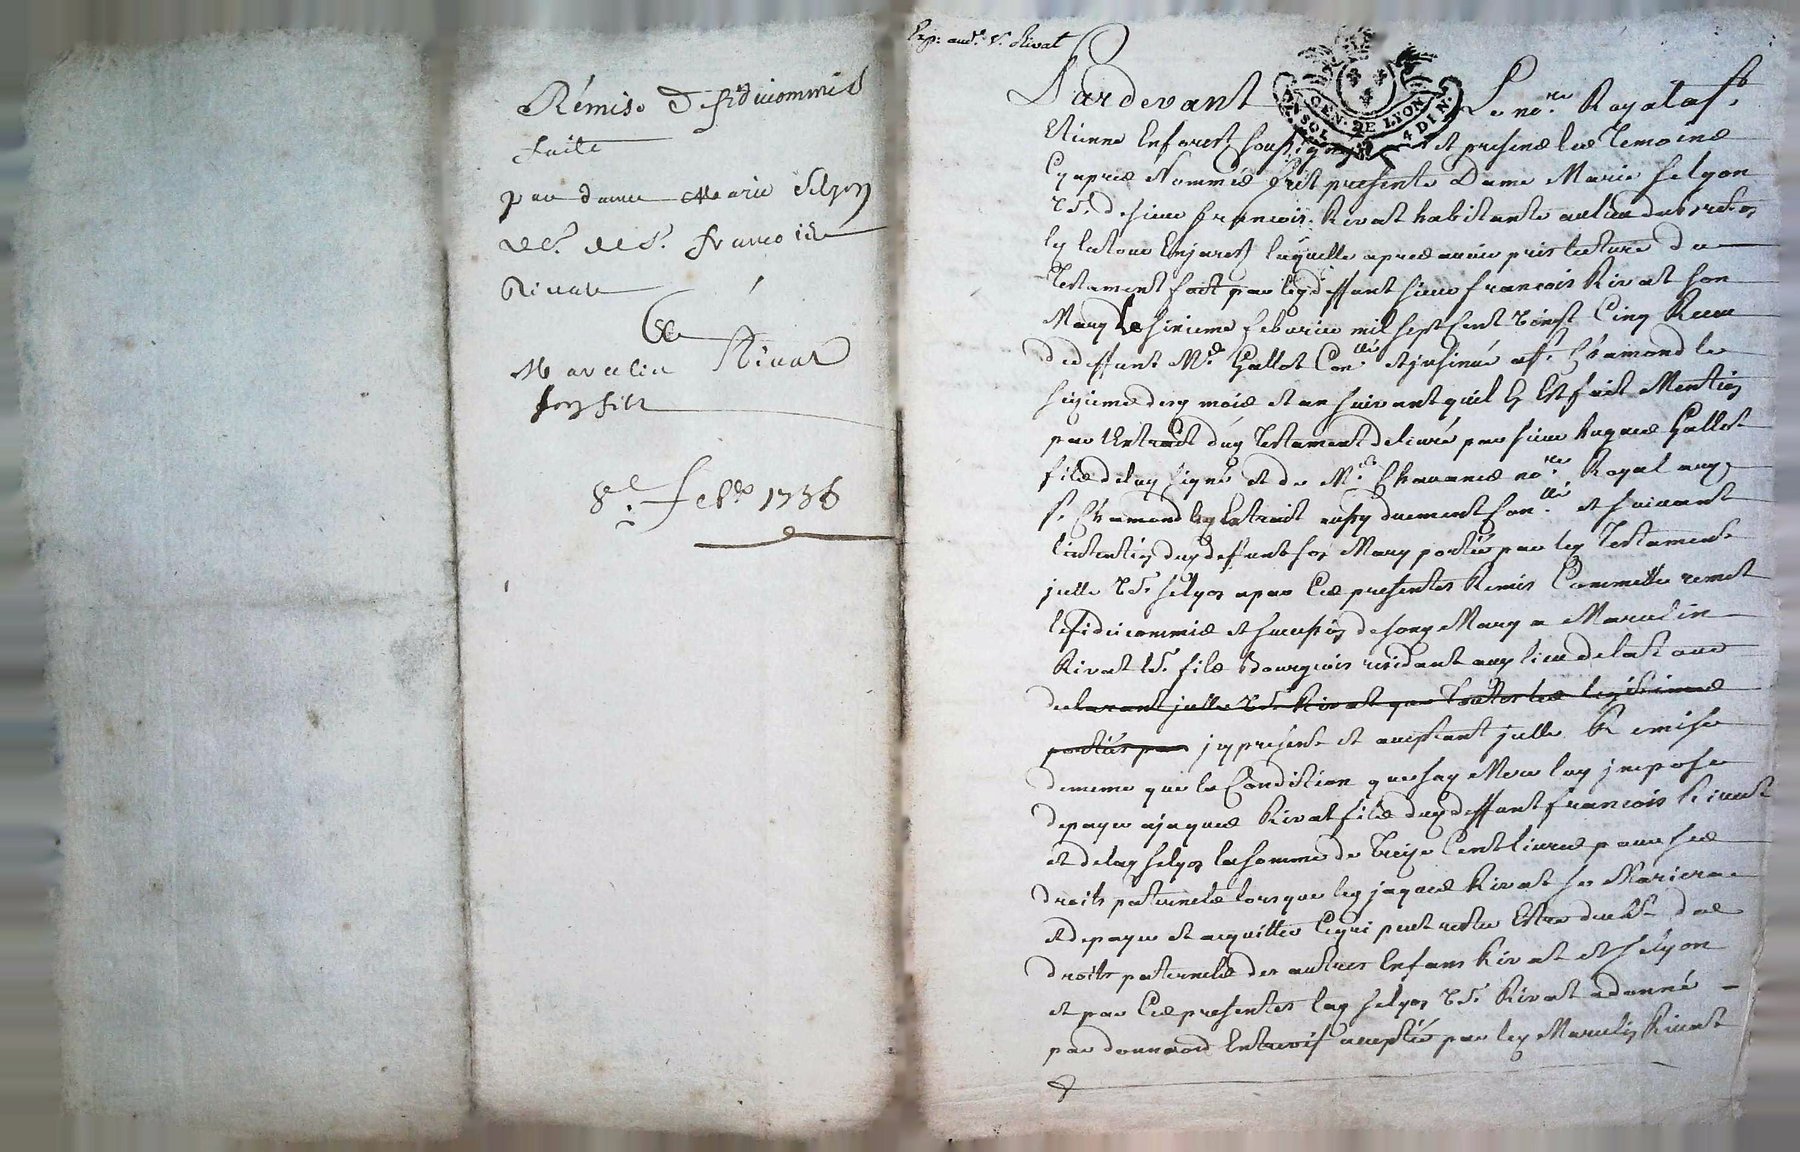 Rémise de fidéicommis
faite
par dame Marie Selyon
ve. de Sr. francoise
Rivat
a
Marcelin Rivat
son fils
8e. febre 1736
Exp: aud. Sr. Rivat
Pardevant Le nore. Royal a St
Etienne en forest soussigné et presens les temoins
Cy apres Nommés fut presente Dame Marie Selyon
ve. de sieur francois Rivat habitante au lieu
la tour en jarest laquelle apres avoir pris lecture du
Testament fait par led. deffunt sieur francois Rivat son
Mary Le sixieme febvrier mil sept sent vingt Cinq Receu
de deffunt Me. Gallot Conllé et insinué a St. Chamond le
seizieme desd mois et an suivant quil y Est fait Mention
par lextrait dud Testament delivré par sieur hugues Gallot
fils de luy signé et de Me. Chavanes nore. Royal aud.
St. Chamond led Extrait aussy duement Conllé et suivant
lintention dud deffunt son Mary portée par led Testament
jcelle ve. Selyon a par Ces presentes Remis Comme elle remet
le fideicommis et succession de sond Mary a Marcelin
Rivat Sr. fils Bourgeois residant aud lieu de la tour
declarant jcelle ve. Rivat que toutes les legitimes
portées par jcy present et acceptant jcelle Remise
de meme que la Condition que sad Mere luy jmpose
de payer a jaques Rivat fils dud deffunt francois Rivat
et de lad Selyon la somme de treize Cent livres pour ses
droits paternels lorsque led jaques Rivat se Mariera
et de payer et acquitter Ce qui peut rester Estre deub des
droits paternels des autres Enfans Rivat et Selyon
et par Ces presentes lad Selyon ve. Rivat a donné
par donnaon Entrevif accepté par led Marcelin Rivat
GEN. DE LYON
4 DEN.